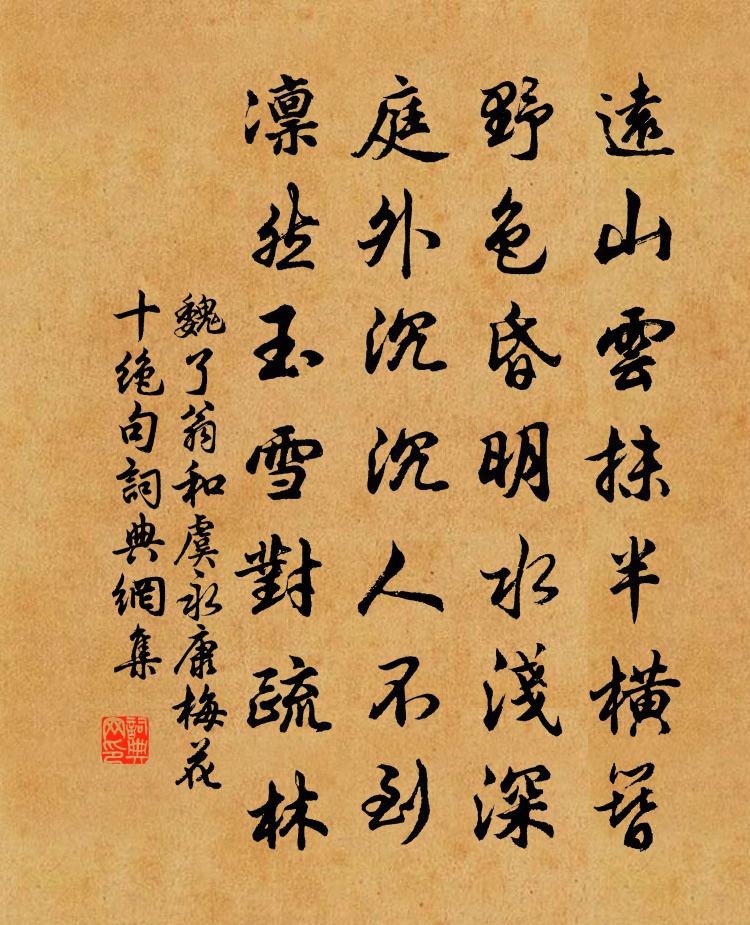 遠山雲抹半橫簪
野色昏明水淺深
庭外沉沉人不到
凜然玉雪對疏林
魏了翁和虞永康梅花
十絶句詞典網集
詞典網印